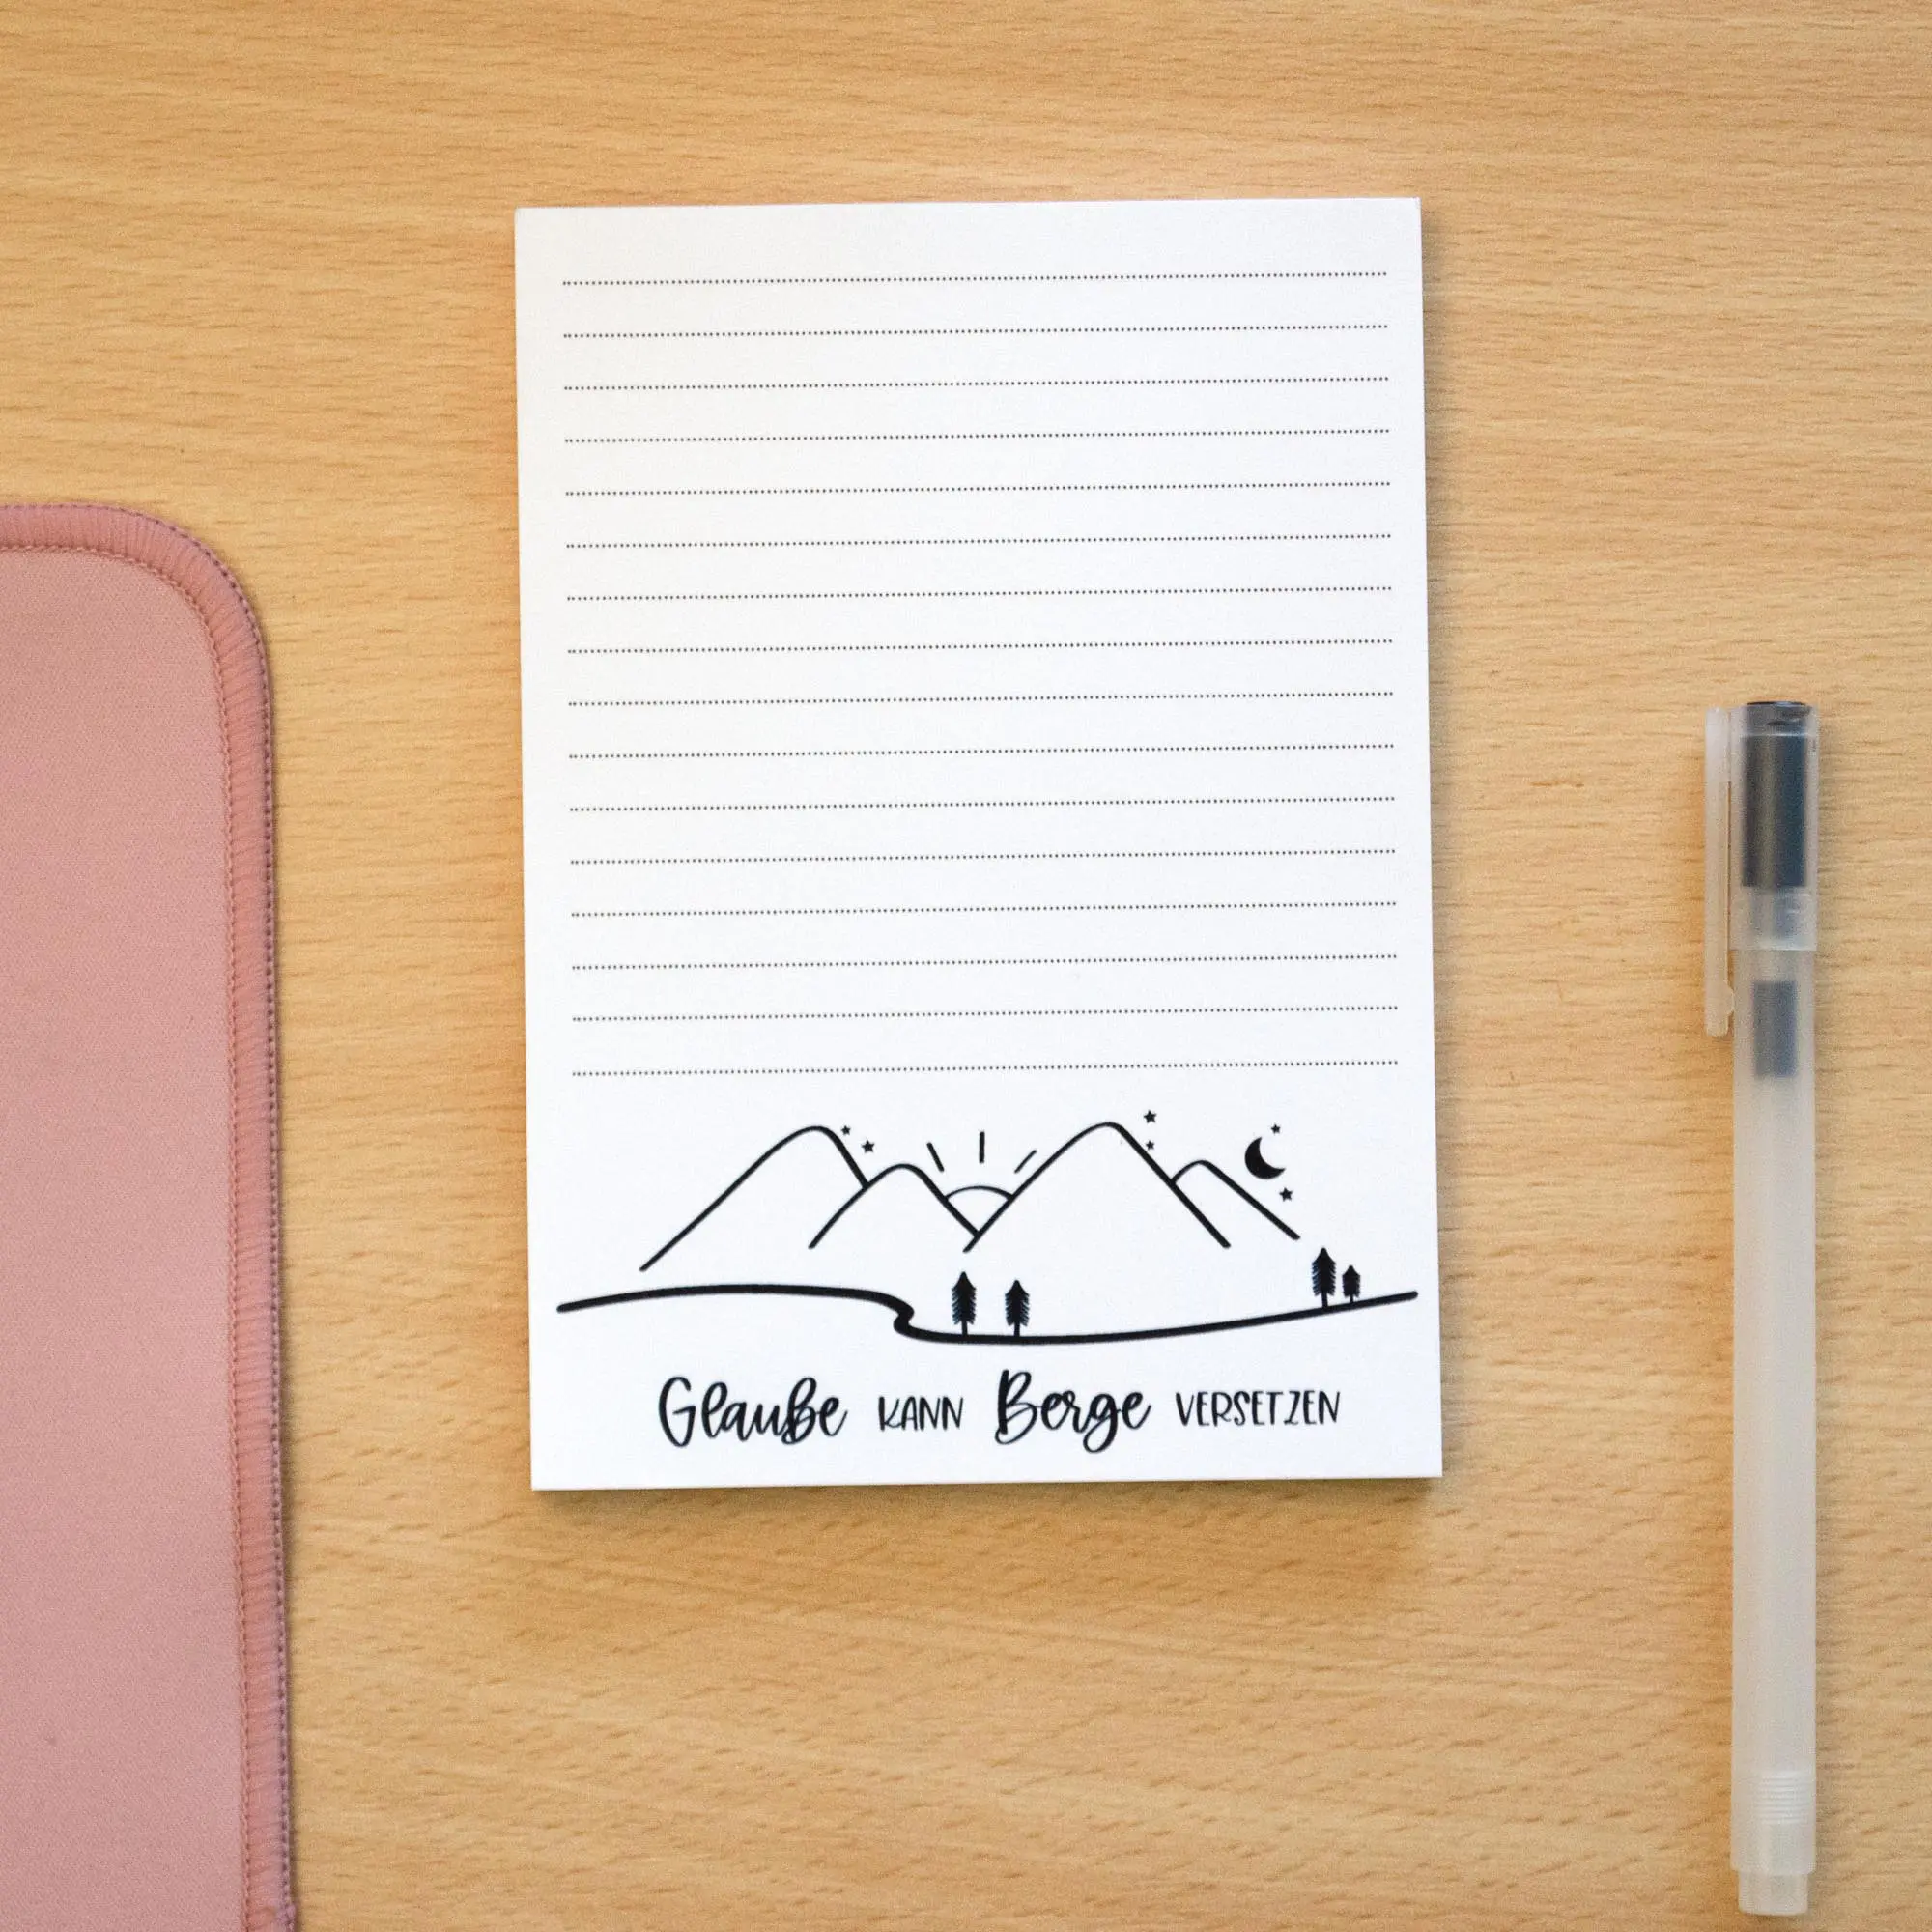 Glaube KANN Berge VERSETZEN